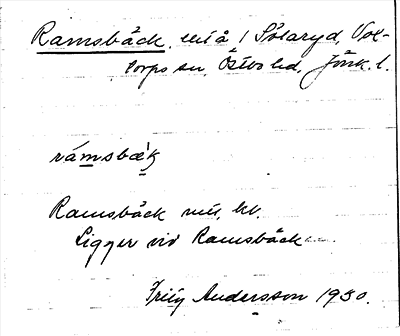 Ramsbäck, litå i Sötaryd, Vol-
torps sn, Östbo hd, Jönk. l.
rámsbæ̀k
Ramsbäck nrl. kt.
Ligger vid Ramsbäck
Frity Andersson 1930.